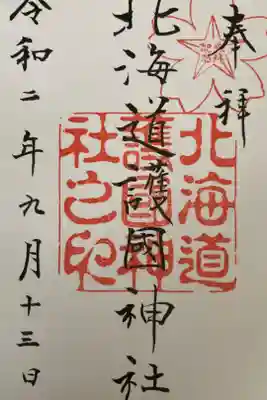 奉拝
北海道護國神社
北海道
護國神
社之印
令和二年九月十三日